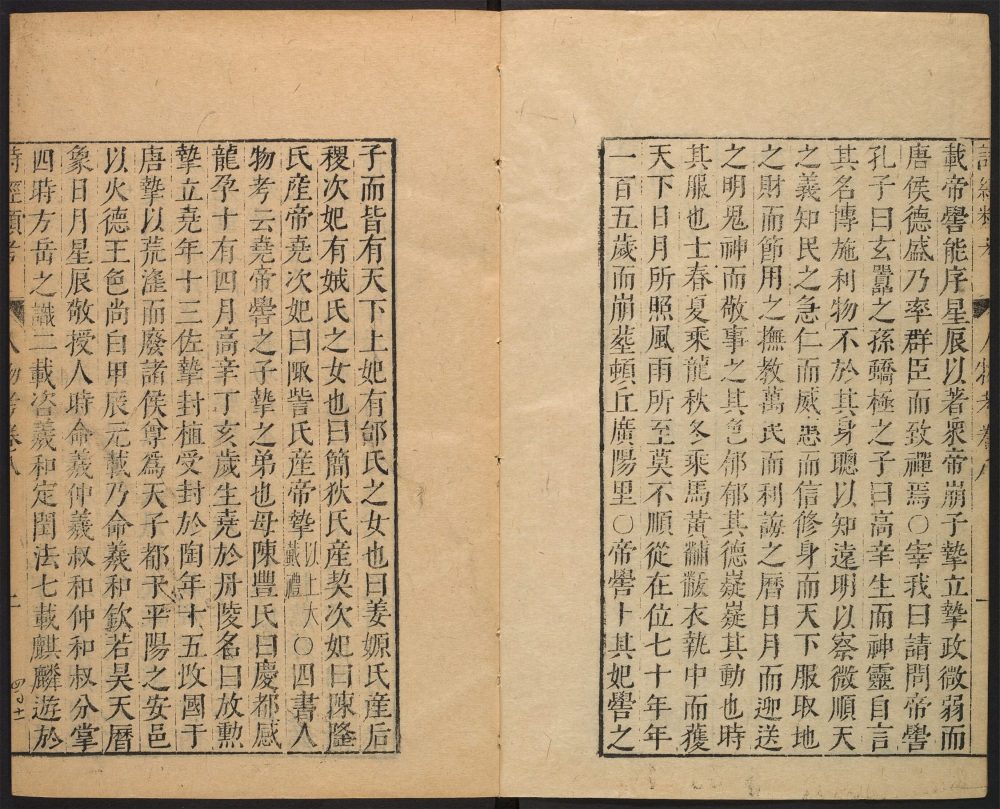 詩經類考 人物考 卷八 一
載帝嚳能序星辰以著衆帝崩子摯立摯政微弱而
唐侯德盛乃率群臣而致禪焉○宰我曰請問帝嚳
孔子曰玄囂之孫蟜極之子曰高辛生而神靈自言
其名博施利物不於其身聰以知遠明以察微順天
之義知民之急仁而威惠而信修身而天下服取地
之財而節用之撫教萬民而利誨之曆日月而迎送
之明鬼神而敬事之其色郁郁其德嶷嶷其動也時
其服也士春夏乘龍秋冬乘馬黃黼黻衣執中而獲
天下日月所照風雨所至莫不順從在位七十年年
一百五歲而崩塟頓丘廣陽里○帝嚳卜其妃嚳之
子而皆有天下上妃有邰氏之女也曰姜嫄氏産后
稷次妃有娀氏之女也曰簡狄氏産契次妃曰陳隆
氏産帝堯次妃曰陬訾氏産帝摯以上大戴禮○四書人
物考云堯帝嚳之子摯之弟也母陳豐氏曰慶都感
龍孕十有四月高辛丁亥歲生堯於丹陵名曰放勲
摯立堯年十三佐摯封植受封於陶年十五改國于
唐摯以荒滛而廢諸侯尊爲天子都于平陽之安邑
以火德王色尚白甲辰元載乃命羲和欽若昊天曆
象日月星辰敬授人時命羲仲羲叔和仲和叔分掌
四時方岳之職二載咨羲和定閏法七載麒麟遊於
詩經類考 人物考 卷八 二